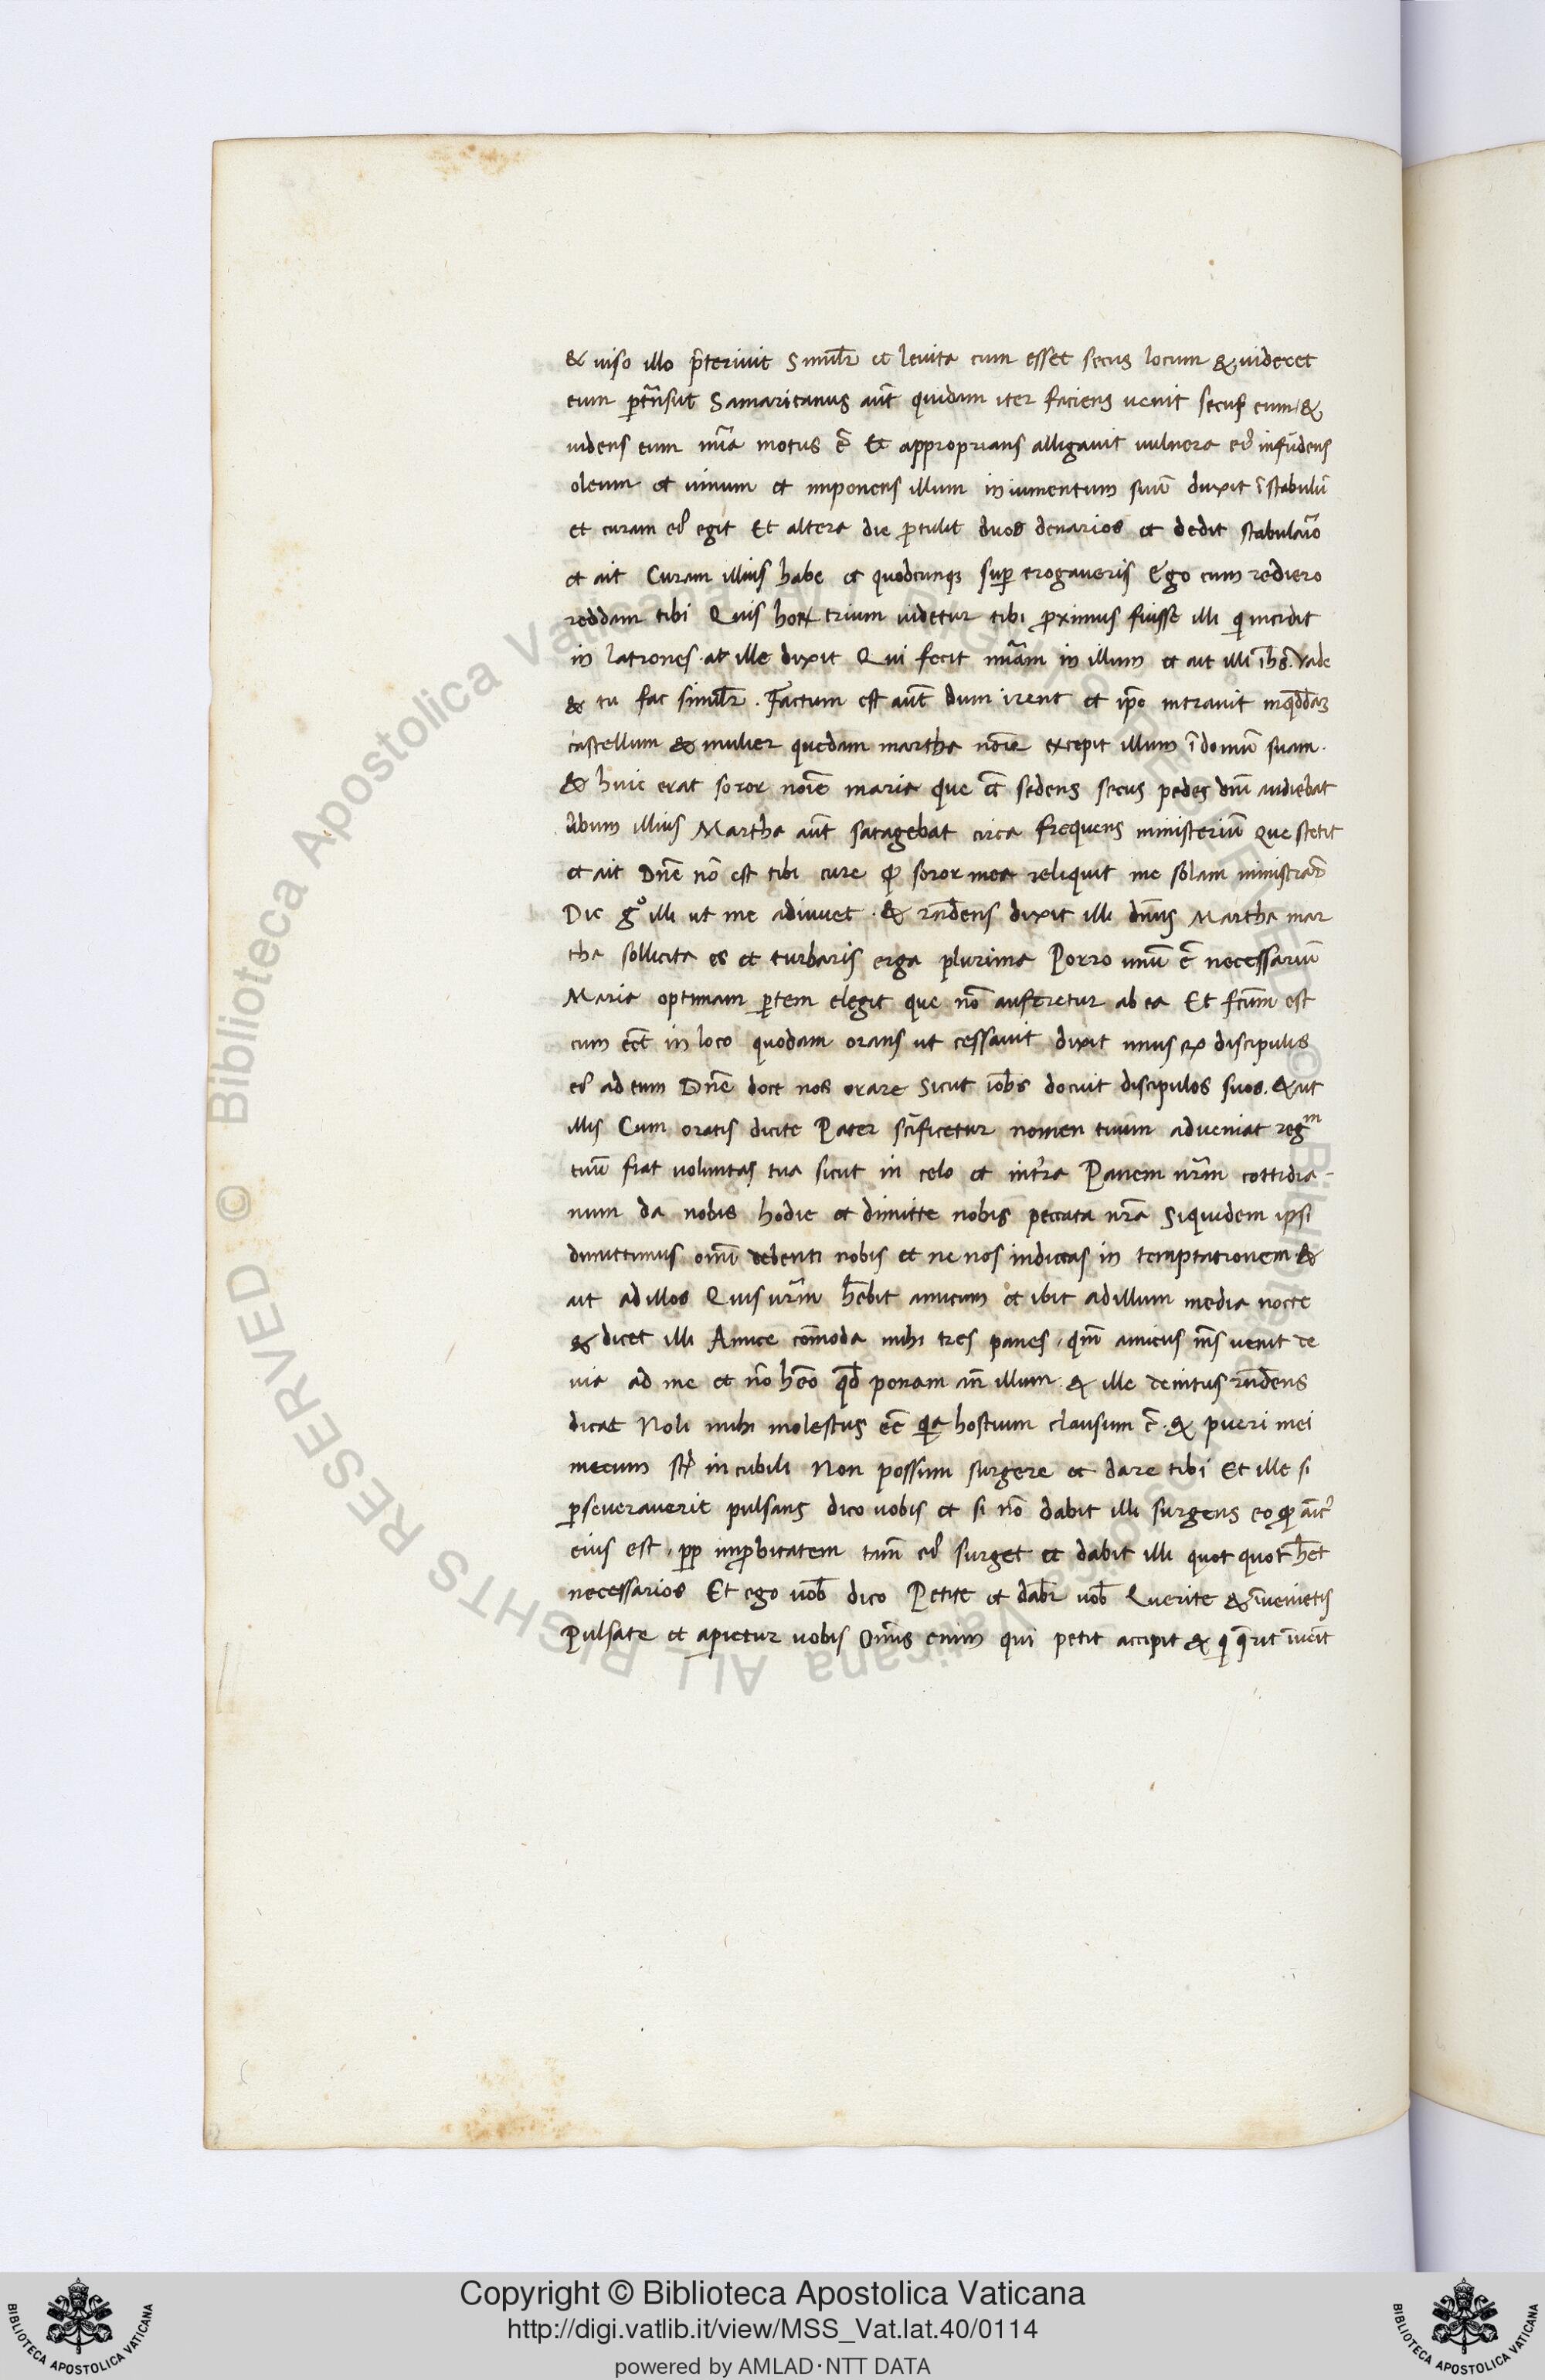 & uiso illo p̄teriuit Simil̄r et leuita cum esset secus locum & uideret
eum ꝑtrāsiit Samaritanus aūt quidam iter faciens uenit secus eum / &
uidens eum mīa motus ē Et approprians alligauit uulnera eiꝰ infūdens
oleum et uinum et imponens illum in iumentum suū duxit ī stabulū
et curam eiꝰ egit Et altera die ꝓtulit duos denarios et dedit stabulario
et ait Curam illius habe et quodcunqꝫ suꝑ erogaueris Ego cum rediero
reddam tibi Quis hoꝝ trium uidetur tibi ꝓximus fuisse illi qui incidit
in latrones . at ille dixit Qui fecit mīam in illum et ait illi ihs̄. Vade
& tu fac simil̄r . Factum est aūt dum irent et ip̄e intrauit in qddā
castellum & mulier quedam martha noīe excepit illum ī domū suam .
& huic erat soror noīe maria que et̄ sedens secus pedes dnī audiebat
ūbum illius Martha aūt satagebat circa frequens ministeriū que stetit
et ait Dnē nō est tibi cure ꝙ soror mea reliquit me solam ministrar̄
Dic gº illi ut me adiuuet . & rn̄dens dixit illi dn̄us Martha mar
tha sollicita es et turbaris erga plurima Porro unū ē necessariū
Maria optimam ꝑtem elegit que nō auferetur ab ea Et fc̄um est
cum eēt in loco quodam orans ut cessauit dixit unus ex discipulis
eiꝰ ad eum Dnē doce nos orare Sicut iohs̄ docuit discipulos suos . & ait
illis Cum oratis dicite Pater sc̄ificetur nomen tuum adueniat regᵐ
tuū fiat uoluntas tua sicut in celo et in t̄ra Panem nr̄m cottidia-
num da nobis hodie et dimitte nobis peccata nr̄a Siquidem ipsi
dimittimus omī debenti nobis et ne nos inducas in temptationem &
ait ad illos Quis ur̄m h̄ebit amicum et ibit ad illum media nocte
& dicet illi Amice com̄oda mihi tres panes , qm̄ amicus ms̄ uenit de
uia ad me et nō hēo qd̄ ponam an̄ illum . & ille deintus rn̄dens
dicat Noli mihi molestus eē quia hostium clausum ē . & pueri mei
mecum st̄ in cubili Non possum surgere et dare tibi Et ille si
ꝑseuerauerit pulsans dico uobis et si nō dabit illi surgens eo ꝙ aīcꝰ
eius est , ꝓp imꝓbitatem tam̄ eiꝰ surget et dabit illi quot quot h̄et
necessarios Et ego uob̄ dico Petite et dabit̄ uob̄ Querite & īuenietis
Pulsate et aꝑietur uobis Om̄is enim qui petit accipit & qui q̄rit īuēit
Copyright © Biblioteca Apostolica Vaticana
http://digi.vatlib.it/view/MSS_Vat.lat.40/0114
powered by AMLAD·NTT DATA
BIBLIOTECA APOSTOLICA VATICANA
BIBLIOTECA APOSTOLICA VATICANA